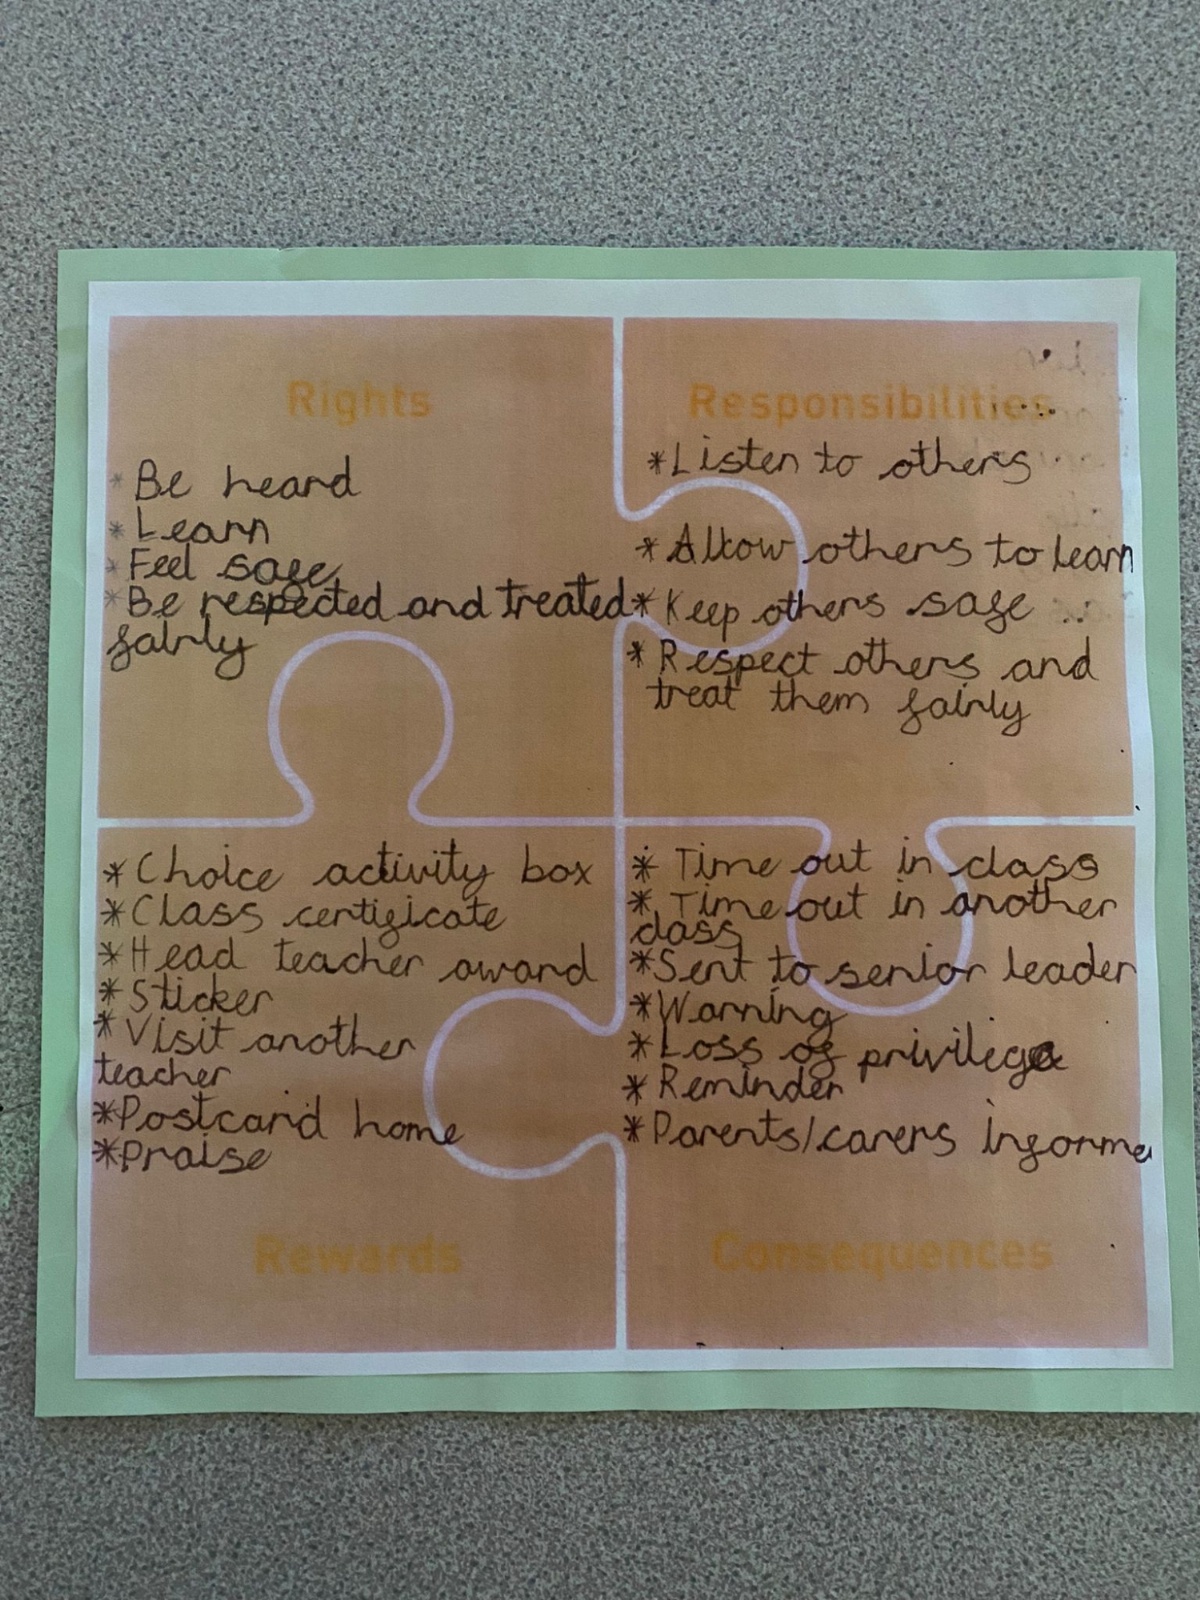 Rights
* Be heard
* Learn
* Feel safe
* Be respected and treated
fairly
Responsibilities
* Listen to others
* Allow others to learn
* Keep others safe
* Respect others and
treat them fairly
* Choice activity box
* Class certificate
* Head teacher award
* Sticker
* Visit another
teacher
* Postcard home
* Praise
Rewards
* Time out in class
* Time out in another
class
* Sent to senior leader
* Warning
* Loss of privilege
* Reminder
* Parents/carers informe
Consequences